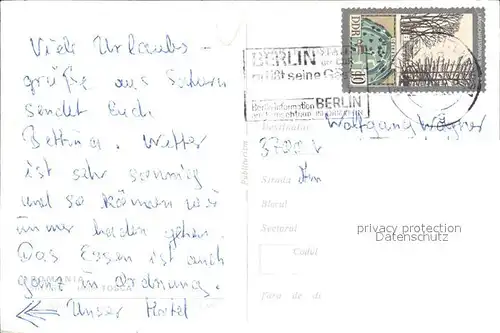 Viele Urlaubs-
grüße aus Saturn
sendet Euch
Bettina. Wetter
ist sehr sonnig
und so können wir
immer baden gehen.
Das Essen ist auch
ganz in Ordnung.
Unser Hotel
ROMANIA
BERLIN
seine G
Berlin-Information BERLIN
DDR 10
Wolfgang Wagner
Destinatar
3700
Strada
Blocul
Sectorul
Codul
Ţara de d
Publiturism
privacy protection
Datenschutz